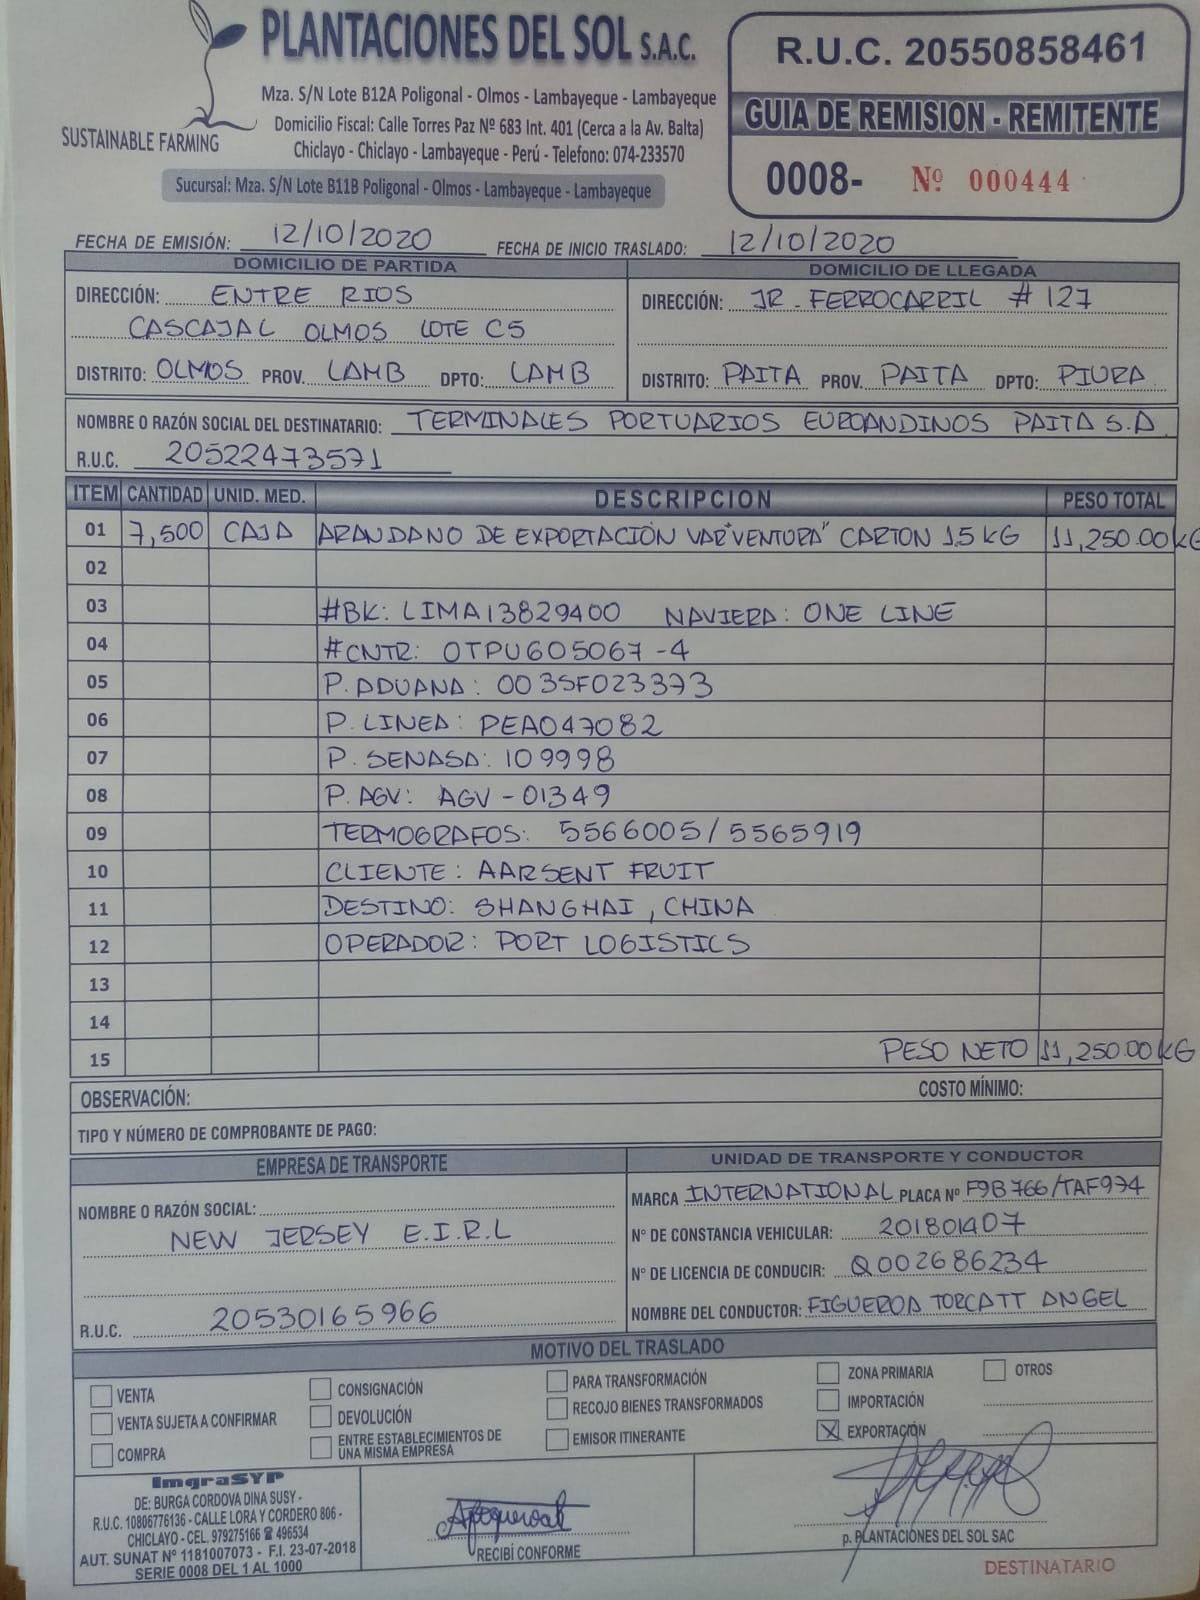 PLANTACIONES DEL SOL S.A.C.
Mza. S/N Lote B12A Poligonal - Olmos - Lambayeque - Lambayeque
Domicilio Fiscal: Calle Torres Paz Nº 683 Int. 401 (Cerca a la Av. Balta)
Chiclayo - Chiclayo - Lambayeque - Perú - Telefono: 074-233570
SUSTAINABLE FARMING
Sucursal: Mza. S/N Lote B11B Poligonal - Olmos - Lambayeque - Lambayeque
R.U.C. 20550858461
GUIA DE REMISION - REMITENTE
0008- Nº 000444
FECHA DE EMISIÓN: 12/10/2020 FECHA DE INICIO TRASLADO: 12/10/2020
DOMICILIO DE PARTIDA
DIRECCIÓN: ENTRE RIOS
CASCAJAL OLMOS LOTE C5
DISTRITO: OLMOS PROV. LAMB DPTO: LAMB
DOMICILIO DE LLEGADA
DIRECCIÓN: JR. FERROCARRIL # 127
DISTRITO: PAITA PROV. PAITA DPTO: PIURA
NOMBRE O RAZÓN SOCIAL DEL DESTINATARIO: TERMINALES PORTUARIOS EUROANDINOS PAITA S.A
R.U.C. 20522473571
ITEM CANTIDAD UNID. MED. DESCRIPCION PESO TOTAL
01 7,500 CAJA ARANDANO DE EXPORTACIÓN VAR"VENTURA" CARTON 1.5 KG 11,250.00KG
02
03 #BK: LIMA13829400 NAVIERA: ONE LINE
04 #CNTR: OTPU605067-4
05 P. ADUANA: 0035F023373
06 P. LINEA: PEA047082
07 P. SENASA: 109998
08 P. AGV: AGV-01349
09 TERMOGRAFOS: 5566005/5565919
10 CLIENTE: AARSENT FRUIT
11 DESTINO: SHANGHAI, CHINA
12 OPERADOR: PORT LOGISTICS
13
14
15 PESO NETO 11,250.00KG
OBSERVACIÓN: COSTO MÍNIMO:
TIPO Y NÚMERO DE COMPROBANTE DE PAGO:
EMPRESA DE TRANSPORTE
NOMBRE O RAZÓN SOCIAL:
NEW JERSEY E.I.R.L
R.U.C. 20530165966
UNIDAD DE TRANSPORTE Y CONDUCTOR
MARCA INTERNATIONAL PLACA Nº F9B766/TAF974
Nº DE CONSTANCIA VEHICULAR: 201801407
Nº DE LICENCIA DE CONDUCIR: Q002686234
NOMBRE DEL CONDUCTOR: FIGUEROA TORCATT ANGEL
MOTIVO DEL TRASLADO
VENTA
VENTA SUJETA A CONFIRMAR
COMPRA
CONSIGNACIÓN
DEVOLUCIÓN
ENTRE ESTABLECIMIENTOS DE
UNA MISMA EMPRESA
PARA TRANSFORMACIÓN
RECOJO BIENES TRANSFORMADOS
EMISOR ITINERANTE
ZONA PRIMARIA
IMPORTACIÓN
X EXPORTACIÓN
OTROS
ImgraSYP
DE: BURGA CORDOVA DINA SUSY -
R.U.C. 10806776136 - CALLE LORA Y CORDERO 806 -
CHICLAYO - CEL. 979275166 ☎ 496534
AUT. SUNAT Nº 1181007073 - F.I. 23-07-2018
SERIE 0008 DEL 1 AL 1000
RECIBÍ CONFORME
p. PLANTACIONES DEL SOL SAC
DESTINATARIO